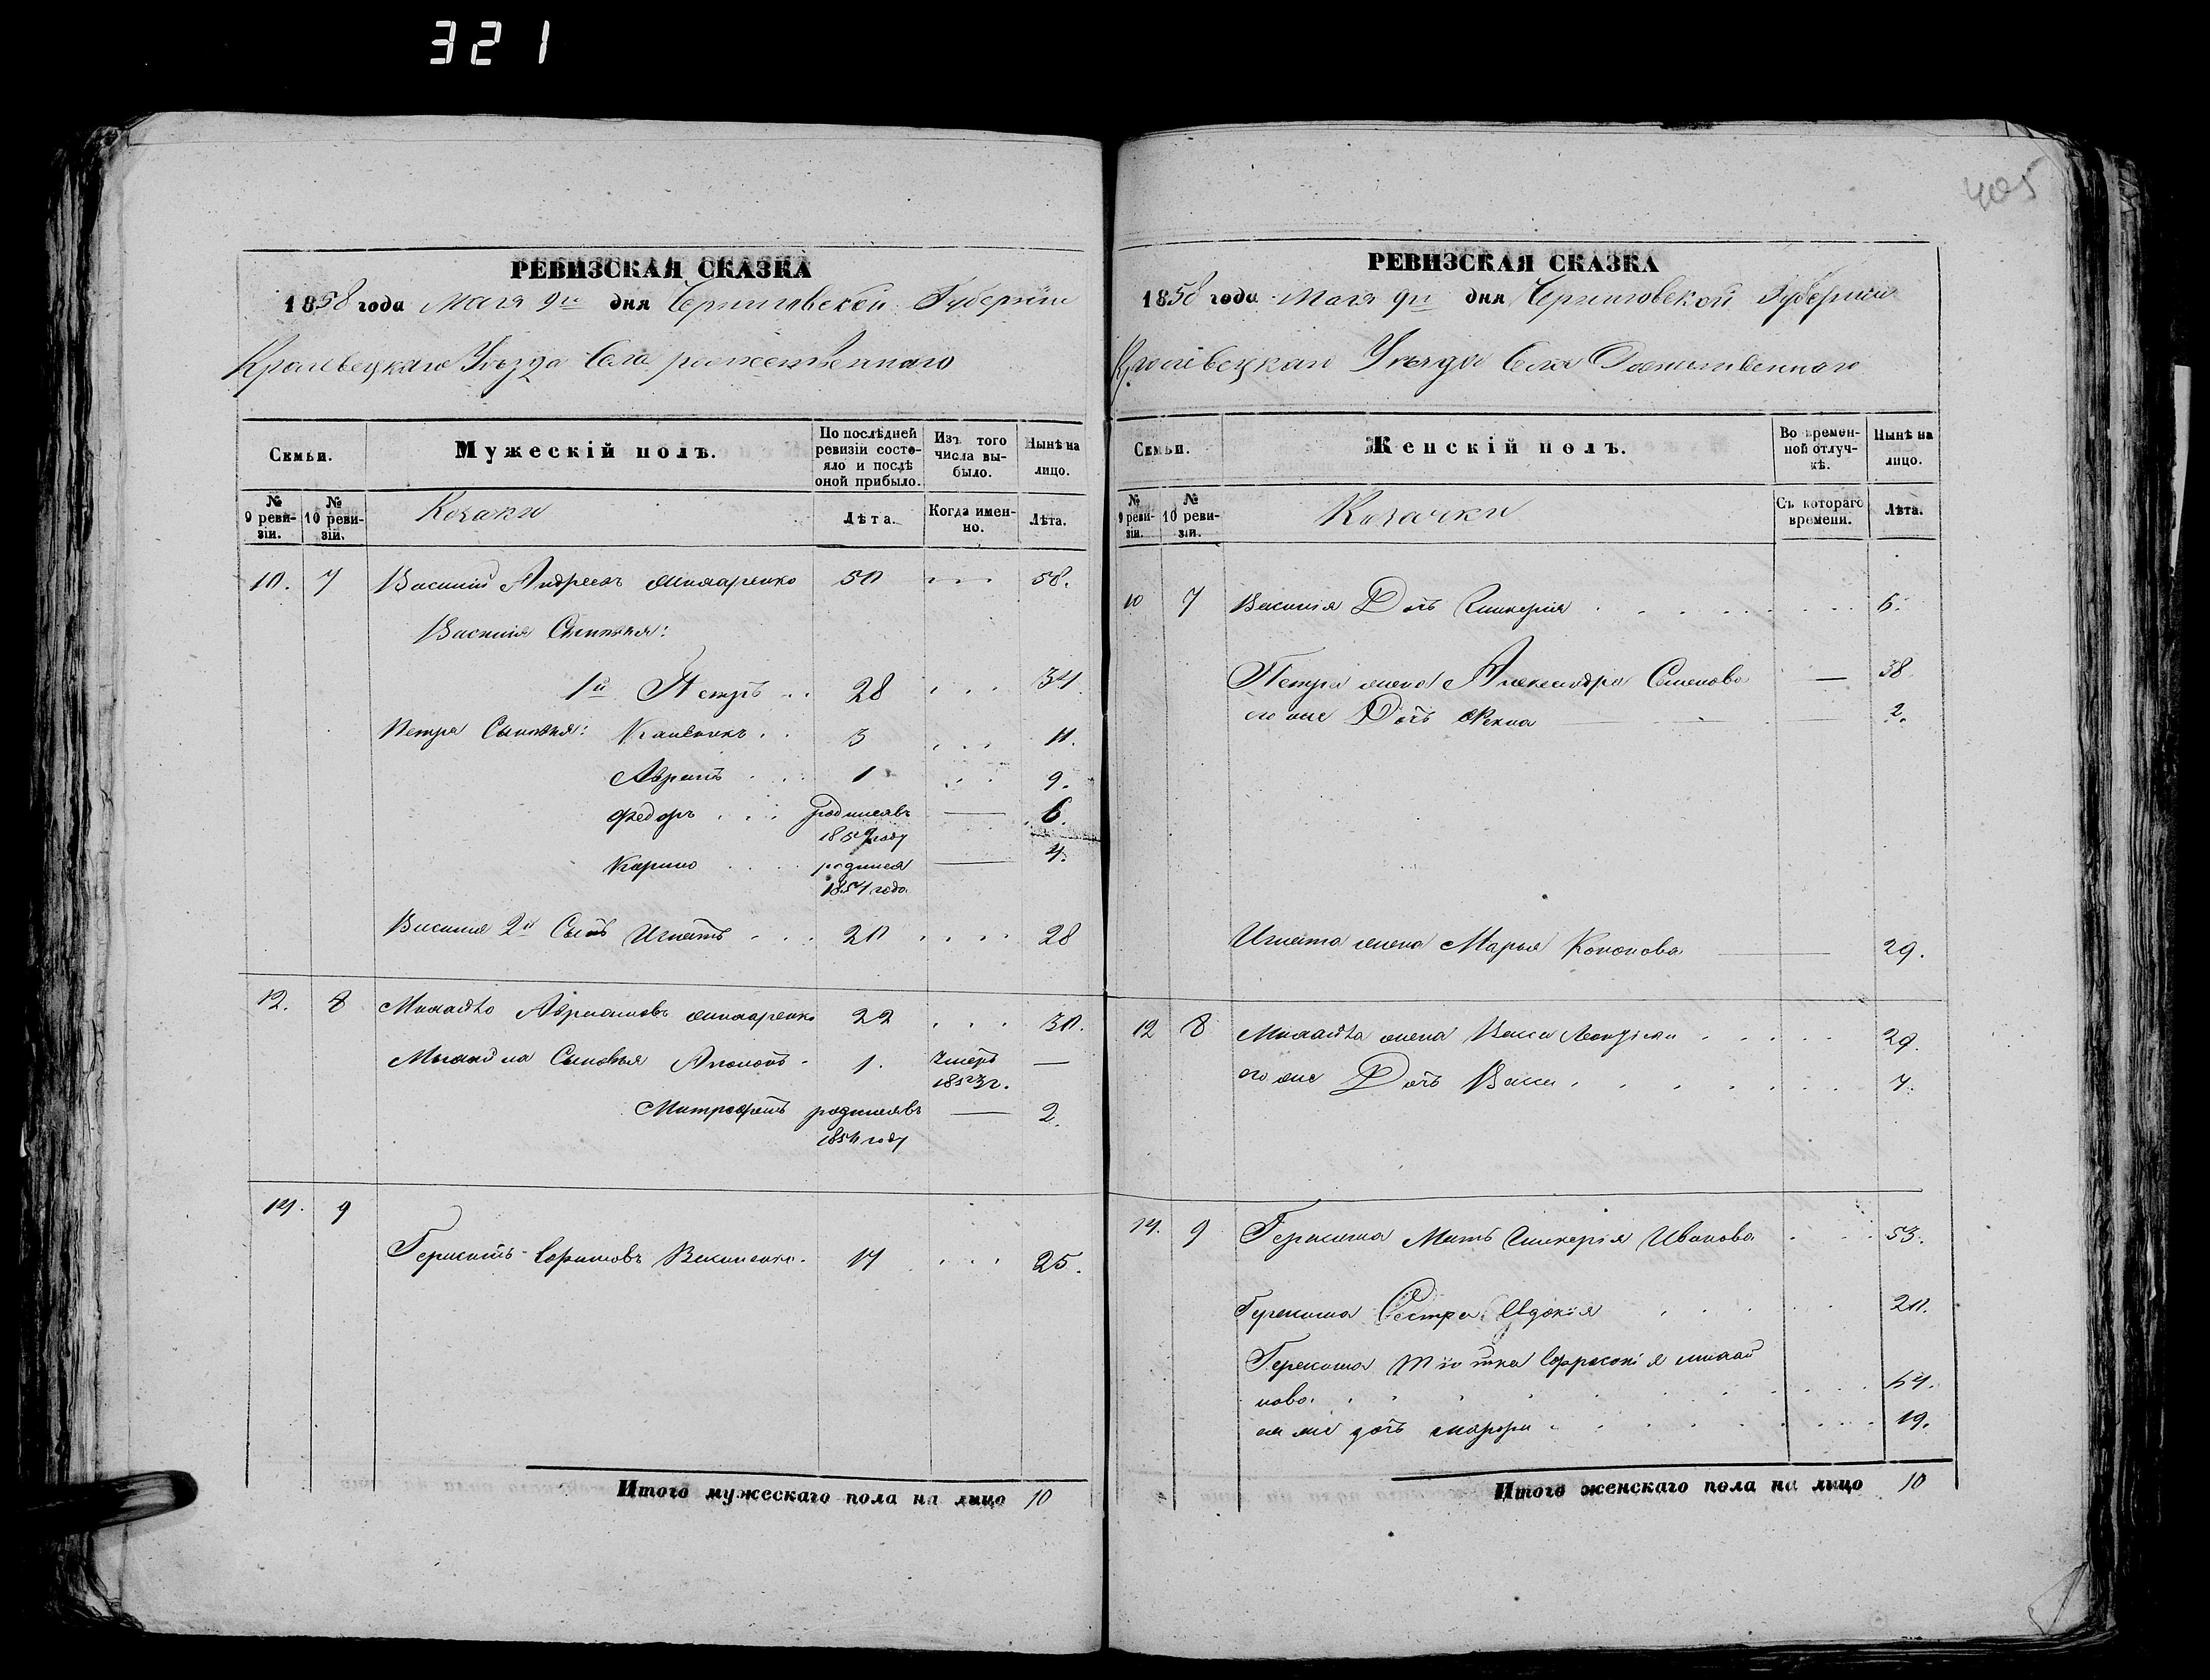 321
405
РЕВИЗСКАЯ СКАЗКА
1858 года Мая 9го дня Черниговской Губерніи
Кролевецкаго Уѣзда Села рожественнаго
Семьи.
Мужескій полъ.
По послѣдней ревизіи состояло и послѣ оной прибыло.
Изъ того числа выбыло.
Нынѣ на лицо.
№ 9 ревизіи.
№ 10 ревизіи.
Козаки
Лѣта.
Когда именно.
Лѣта.
10. 7 Василій Андреевъ 50 58.
Василия Сыновья:
1й Петръ 28 34
Петра Сыновья: 3 11.
Аврамъ 1 9.
Федоръ родился въ 6.
1852 году
родился 4.
1854 года
Василия 2й Сынъ Игнатъ 20 28
12. 8 Михайло 22 30.
Михайла Сыновья 1. Умеръ —
1853 г.
Митрофанъ родился въ — 2.
году
14. 9
Герасимъ Василенко. 17 25.
Итого мужескаго пола на лицо 10
РЕВИЗСКАЯ СКАЗКА
1858 года Мая 9го дня Черниговской Губерніи
Кролевецкаго Уѣзда Села Рожественнаго
Семьи.
Женскій полъ.
Во временной отлучкѣ.
Нынѣ на лицо.
№ 9 ревизіи.
№ 10 ревизіи.
Козачки
Съ котораго времени.
Лѣта.
10 7 Василія Дочь Гликерія 6.
Петра жена Александра Семенова — 38
его же Дочь Фекла 2.
Игната жена Марья Кононова 29.
12 8 Михайла жена Васса 29.
его же Дочь Васса 7.
14. 9 Герасима Мать Гликерія Иванова 53.
Герасима Сестра Евдокія 20.
Герасима тіотка Ефросонія Михай
лова 64.
ея же дочь Марфа 19.
Итого женскаго пола на лицо 10